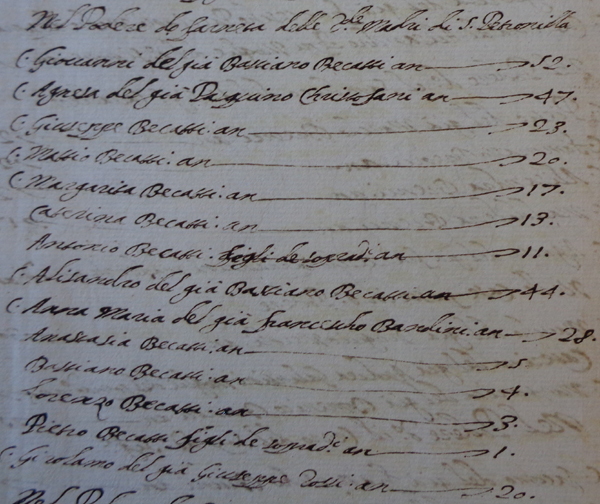 Nel Podere di delle Rde Madri di S. Petronilla
C. Giovanni del già Bastiano Becatti an 52.
C. Agnesa del già Pasquino Christofani an 47.
C. Giuseppe Becatti: an 23.
C. Matteo Becatti: an 20.
C. Margarita Becatti: an 17.
Caterina Becatti: an 13.
Antonio Becatti: figli de sopradi: an 11.
C. Alisandro del già Bastiano Becatti: an 44.
C. Anna Maria del già Francescho Bandini: an 28.
Anastasia Becatti: an 5
Bastiano Becatti: an 4.
Lorenzo Becatti: an 3.
Pietro Becatti figli de sopradi: an 1.
C. Girolamo del già Giuseppe an 20.
Nel